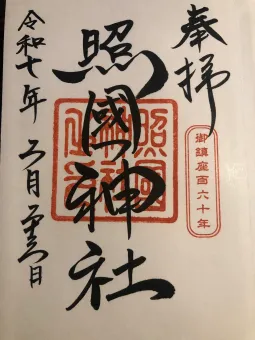 奉拝
御鎮座百六十年
照國神社
令和七年 二月二十六日